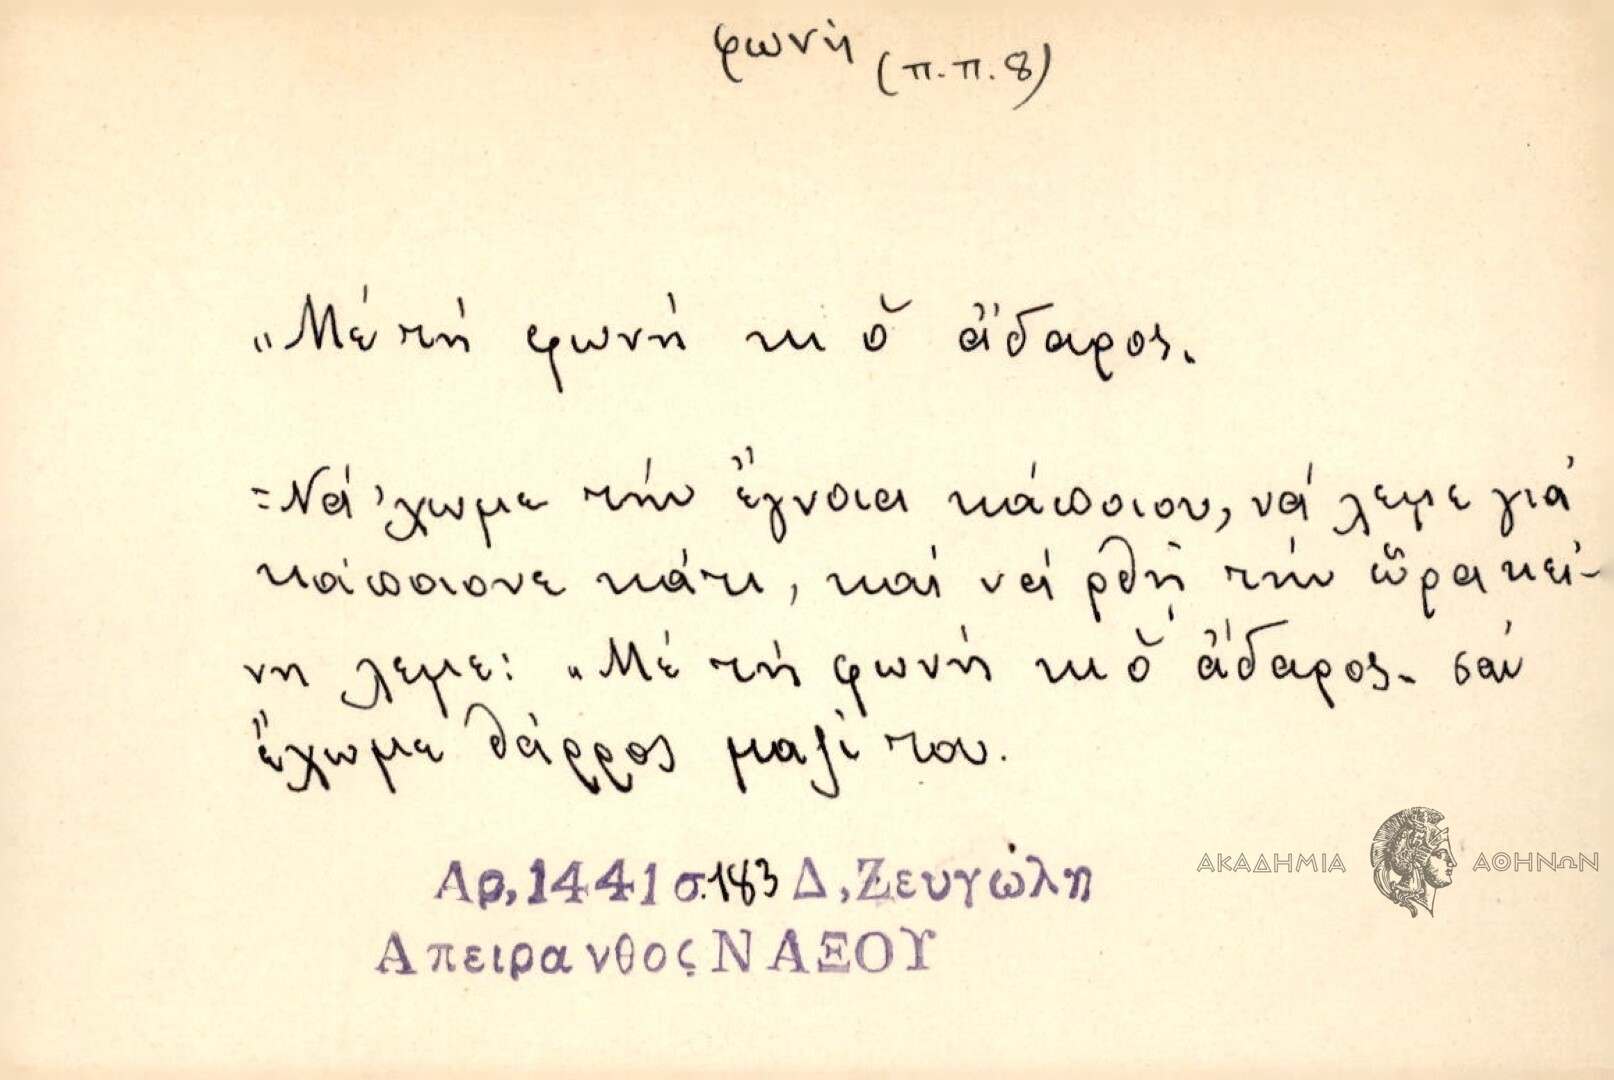 φωνή (π.π. 8)
„Μέ τή φωνή κι ὁ ἄδαρος.
=Νά 'χωμε τήν ἔγνοια κάποιου, νά λεμε γιά
κάποιονε κάτι, καί νά ρθῆ τήν ὥρα κεί-
νη λεμε: „Μέ τή φωνή κι ὁ ἄδαρος. σάν
ἔχωμε θάρρος μαζί του.
Αρ, 1441 σ. 183 Δ, Ζευγώλη
Απειρανθος ΝΑΞΟΥ
ΑΚΑΔΗΜΙΑ ΑΘΗΝΩΝ